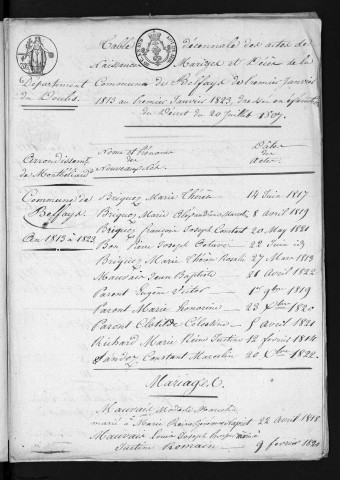 Table décennale des actes de
Naissance Mariages et Décès de la
Commune de Belfays du premier janvier
1813 au premier Janvier 1823, dressée en exécution
du Décret du 20 Juillet 1807.
Département
du Doubs
Arrondissement
de Montbéliard
Noms et Prénoms
des
Nouveaux Nés.
Dates
des
actes.
Commune de
Belfays
An 1813 à 1823
Briquez Marie Thérèse 14 Juin 1817
Briquez Marie 8 avril 1819
Briquez François Joseph Constant 20 May 1821
Bon Pierre Joseph 22 Juin
Briquez Marie Thérèse Rosalie 27 Mars 1813
Mauvais Jean Baptiste 21 avril 1822
Parent Eugène Victor 1er 9bre 1819
Parent Marie Honorine 23 1820
Parent Clotilde Célestine 5 avril 1821
Richard Marie Justine 12 février 1814
Sandoz Constant Marcelin 20 1822
Mariages.
Mauvais
marié à Marie 22 avril 1818
Mauvais Louis Joseph
Justine Romain 9 février 1820